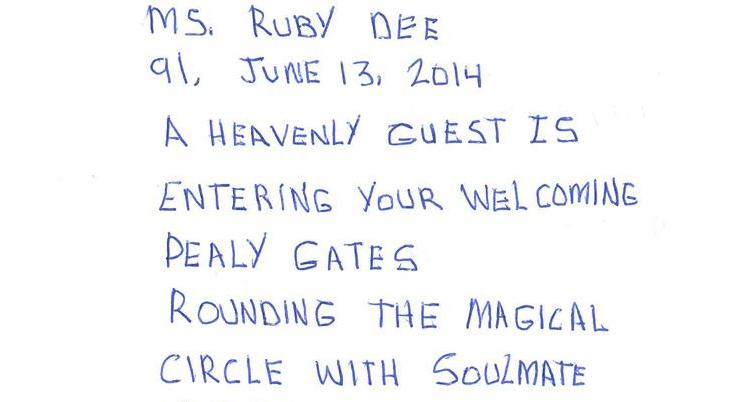 MS. RUBY DEE
91, JUNE 13, 2014
A HEAVENLY GUEST IS
ENTERING YOUR WELCOMING
PEALY GATES
ROUNDING THE MAGICAL
CIRCLE WITH SOULMATE